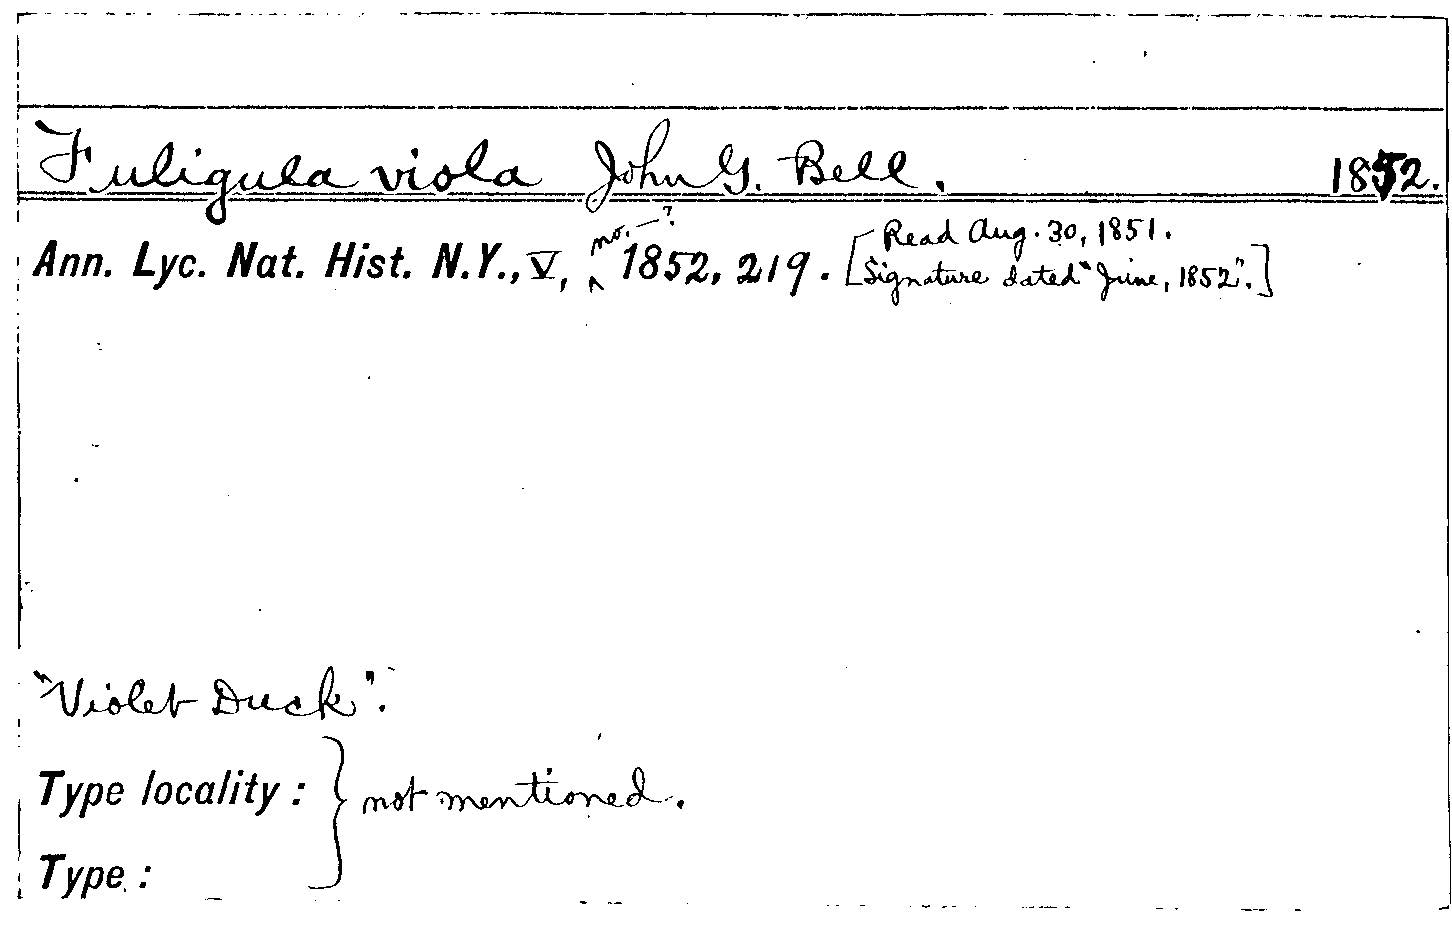 Fuligula viola John G. Bell. 1852.
Ann. Lyc. Nat. Hist. N.Y., V, no. —? 1852, 219. [Read Aug. 30, 1851.
Signature dated "June, 1852".]
"Violet Duck".
Type locality : } not mentioned.
Type :